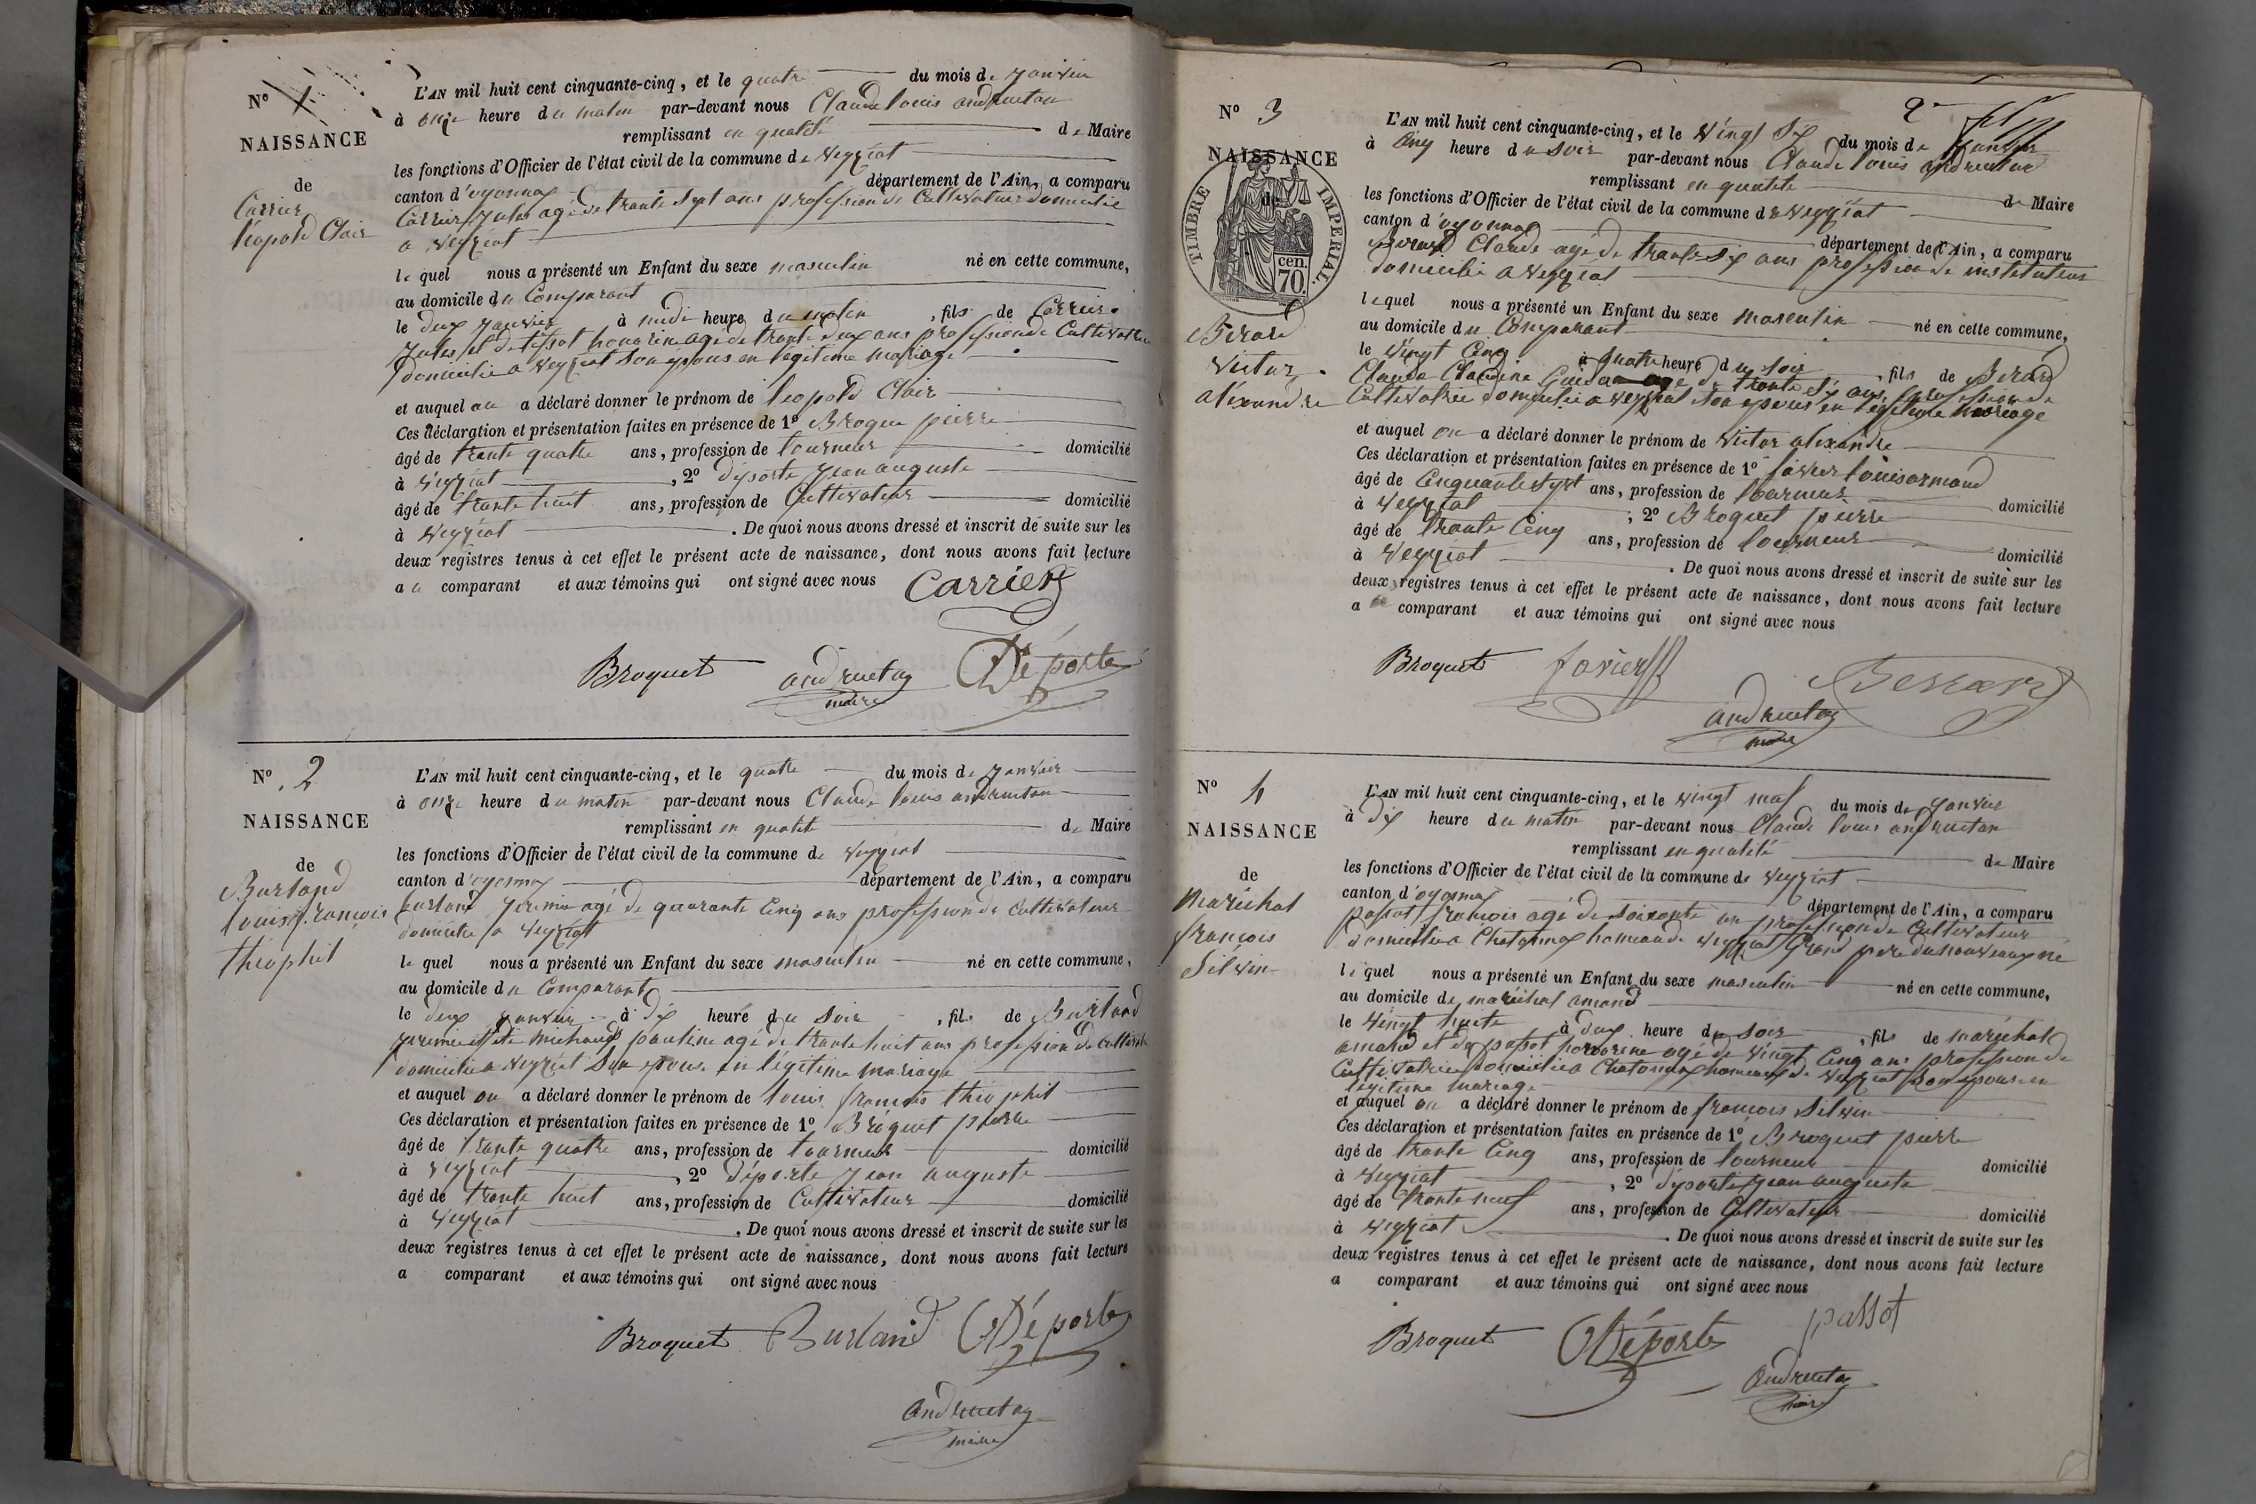 N° 1
NAISSANCE
de
Carrier
léopold Clair
L'AN mil huit cent cinquante-cinq, et le quatre du mois de Janvier
à onze heure du matin par-devant nous Claude louis andruetan
remplissant en qualité de Maire
les fonctions d'Officier de l'état civil de la commune de Veyziat
canton d'oyonnax département de l'Ain, a comparu
Carrier Jules agé de trante sept ans profession de Cultivateur domicilié
a Veyziat
le quel nous a présenté un Enfant du sexe masculin né en cette commune,
au domicile du Comparant
le deux Janvier à midi heure du matin, fils de Carrier
Jules et de tissot honorine agé de trante deux ans profession de Cultivatrice
domicilié a Veyziat son epouse en légitime mariage
et auquel on a déclaré donner le prénom de léopold Clair
Ces déclaration et présentation faites en présence de 1° Broquet pierre
âgé de trante quatre ans, profession de tourneur domicilié
à Veyziat, 2° déporte Jean auguste
âgé de trante huit ans, profession de Cultivateur domicilié
à Veyziat. De quoi nous avons dressé et inscrit de suite sur les
deux registres tenus à cet effet le présent acte de naissance, dont nous avons fait lecture
au comparant et aux témoins qui ont signé avec nous Carrier
Broquet andruetan Déporte
maire
N° 2
NAISSANCE
de
Burland
louis françois
théophil
L'AN mil huit cent cinquante-cinq, et le quatre du mois de Janvier
à onze heure du matin par-devant nous Claude louis andruetan
remplissant en qualité de Maire
les fonctions d'Officier de l'état civil de la commune de Veyziat
canton d'oyonnax département de l'Ain, a comparu
burland Jérémie agé de quarante Cinq ans profession de Cultivateur
domicilié a Veyziat
le quel nous a présenté un Enfant du sexe masculin né en cette commune,
au domicile du Comparant
le deux Janvier à dix heure du soir, fils de Burland
Jérémie et de michaud pauline agé de trante huit ans profession de Cultivatrice
domicilié a Veyziat Son epouse en légitime mariage
et auquel on a déclaré donner le prénom de louis françois théophil
Ces déclaration et présentation faites en présence de 1° Broquet pierre
âgé de trante quatre ans, profession de tourneur domicilié
à Veyziat, 2° déporte Jean auguste
âgé de trante huit ans, profession de Cultivateur domicilié
à Veyziat. De quoi nous avons dressé et inscrit de suite sur les
deux registres tenus à cet effet le présent acte de naissance, dont nous avons fait lecture
a comparant et aux témoins qui ont signé avec nous
Broquet Burland Déporte
andruetan
maire
2
N° 3
NAISSANCE
de
TIMBRE IMPERIAL.
cen.
70.
Birard
Victor
aléxandre
L'AN mil huit cent cinquante-cinq, et le Vingt Six du mois de Janvier
à Cinq heure du soir par-devant nous Claude louis andruetan
remplissant en qualité de Maire
les fonctions d'Officier de l'état civil de la commune de Veyziat
canton d'oyonnax département de l'Ain, a comparu
Birard Claude agé de trante six ans profession de instituteur
domicilié a Veyziat
lequel nous a présenté un Enfant du sexe masculin né en cette commune,
au domicile du Comparant
le Vingt Cinq à quatre heure du soir, fils de Birard
Claude Claudine age de trante six ans profession de
Cultivatrice domicilié a Veyziat son epouse en légitime mariage
et auquel on a déclaré donner le prénom de Victor aléxandre
Ces déclaration et présentation faites en présence de 1° favier louis armand
âgé de Cinquante sept ans, profession de tourneur domicilié
à Veyziat; 2° Broquet pierre
âgé de trante Cinq ans, profession de tourneur domicilié
à Veyziat. De quoi nous avons dressé et inscrit de suite sur les
deux registres tenus à cet effet le présent acte de naissance, dont nous avons fait lecture
a comparant et aux témoins qui ont signé avec nous
Broquet favier
andruetan
maire
N° 4
NAISSANCE
de
Maréchal
françois
Silvin
L'AN mil huit cent cinquante-cinq, et le Vingt neuf du mois de Janvier
à dix heure du matin par-devant nous Claude louis andruetan
remplissant en qualité de Maire
les fonctions d'Officier de l'état civil de la commune de Veyziat
canton d'oyonnax département de l'Ain, a comparu
passot françois agé de soixante un profession de Cultivateur
domicilié a Chatonnax hameau de Veyziat Grand pere du nouveau né
lequel nous a présenté un Enfant du sexe masculin né en cette commune,
au domicile de maréchal amand
le Vingt huite à deux heure du soir, fils de maréchal
amand et de passot honorine agé de Vingt Cinq ans profession de
Cultivatrice domicilié a Chatonnax hameau de Veyziat son epouse en
légitime mariage
et auquel on a déclaré donner le prénom de françois Silvin
Ces déclaration et présentation faites en présence de 1° Broquet pierre
âgé de trante Cinq ans, profession de tourneur domicilié
à Veyziat, 2° déporte Jean auguste
âgé de trante neuf ans, profession de Cultivateur domicilié
à Veyziat. De quoi nous avons dressé et inscrit de suite sur les
deux registres tenus à cet effet le présent acte de naissance, dont nous avons fait lecture
a comparant et aux témoins qui ont signé avec nous
Broquet Déporte passot
andruetan
maire